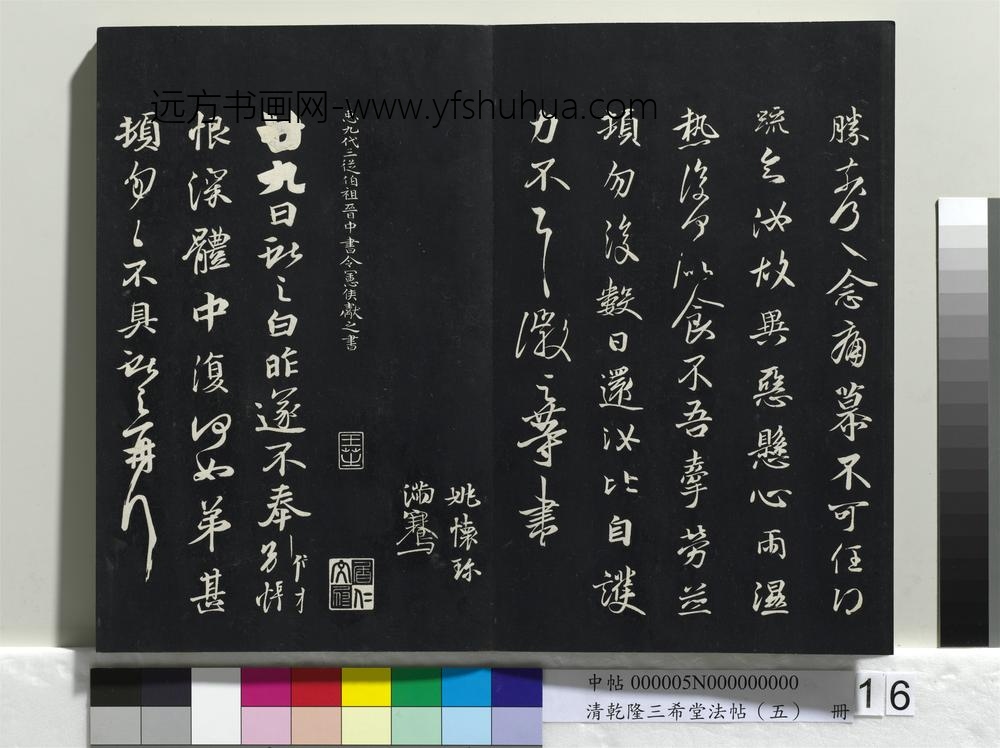 勝奈何〻念痛慕不可任得
疏知汝故異惡懸心雨濕
熱復何似食不吾牽勞並
頓勿復數日還汝比自護
力不一一徽之等書
姚懷珍
滿騫
九代三從伯祖晉中書令憲侯獻之書
王芝
廿九日獻之白昨遂不奉別悵
恨深體中復何如弟甚
頓匆〻不具獻之再拜
远方书画网-www.yfshuhua.com
中帖 000005N000000000
清乾隆三希堂法帖（五） 冊 16